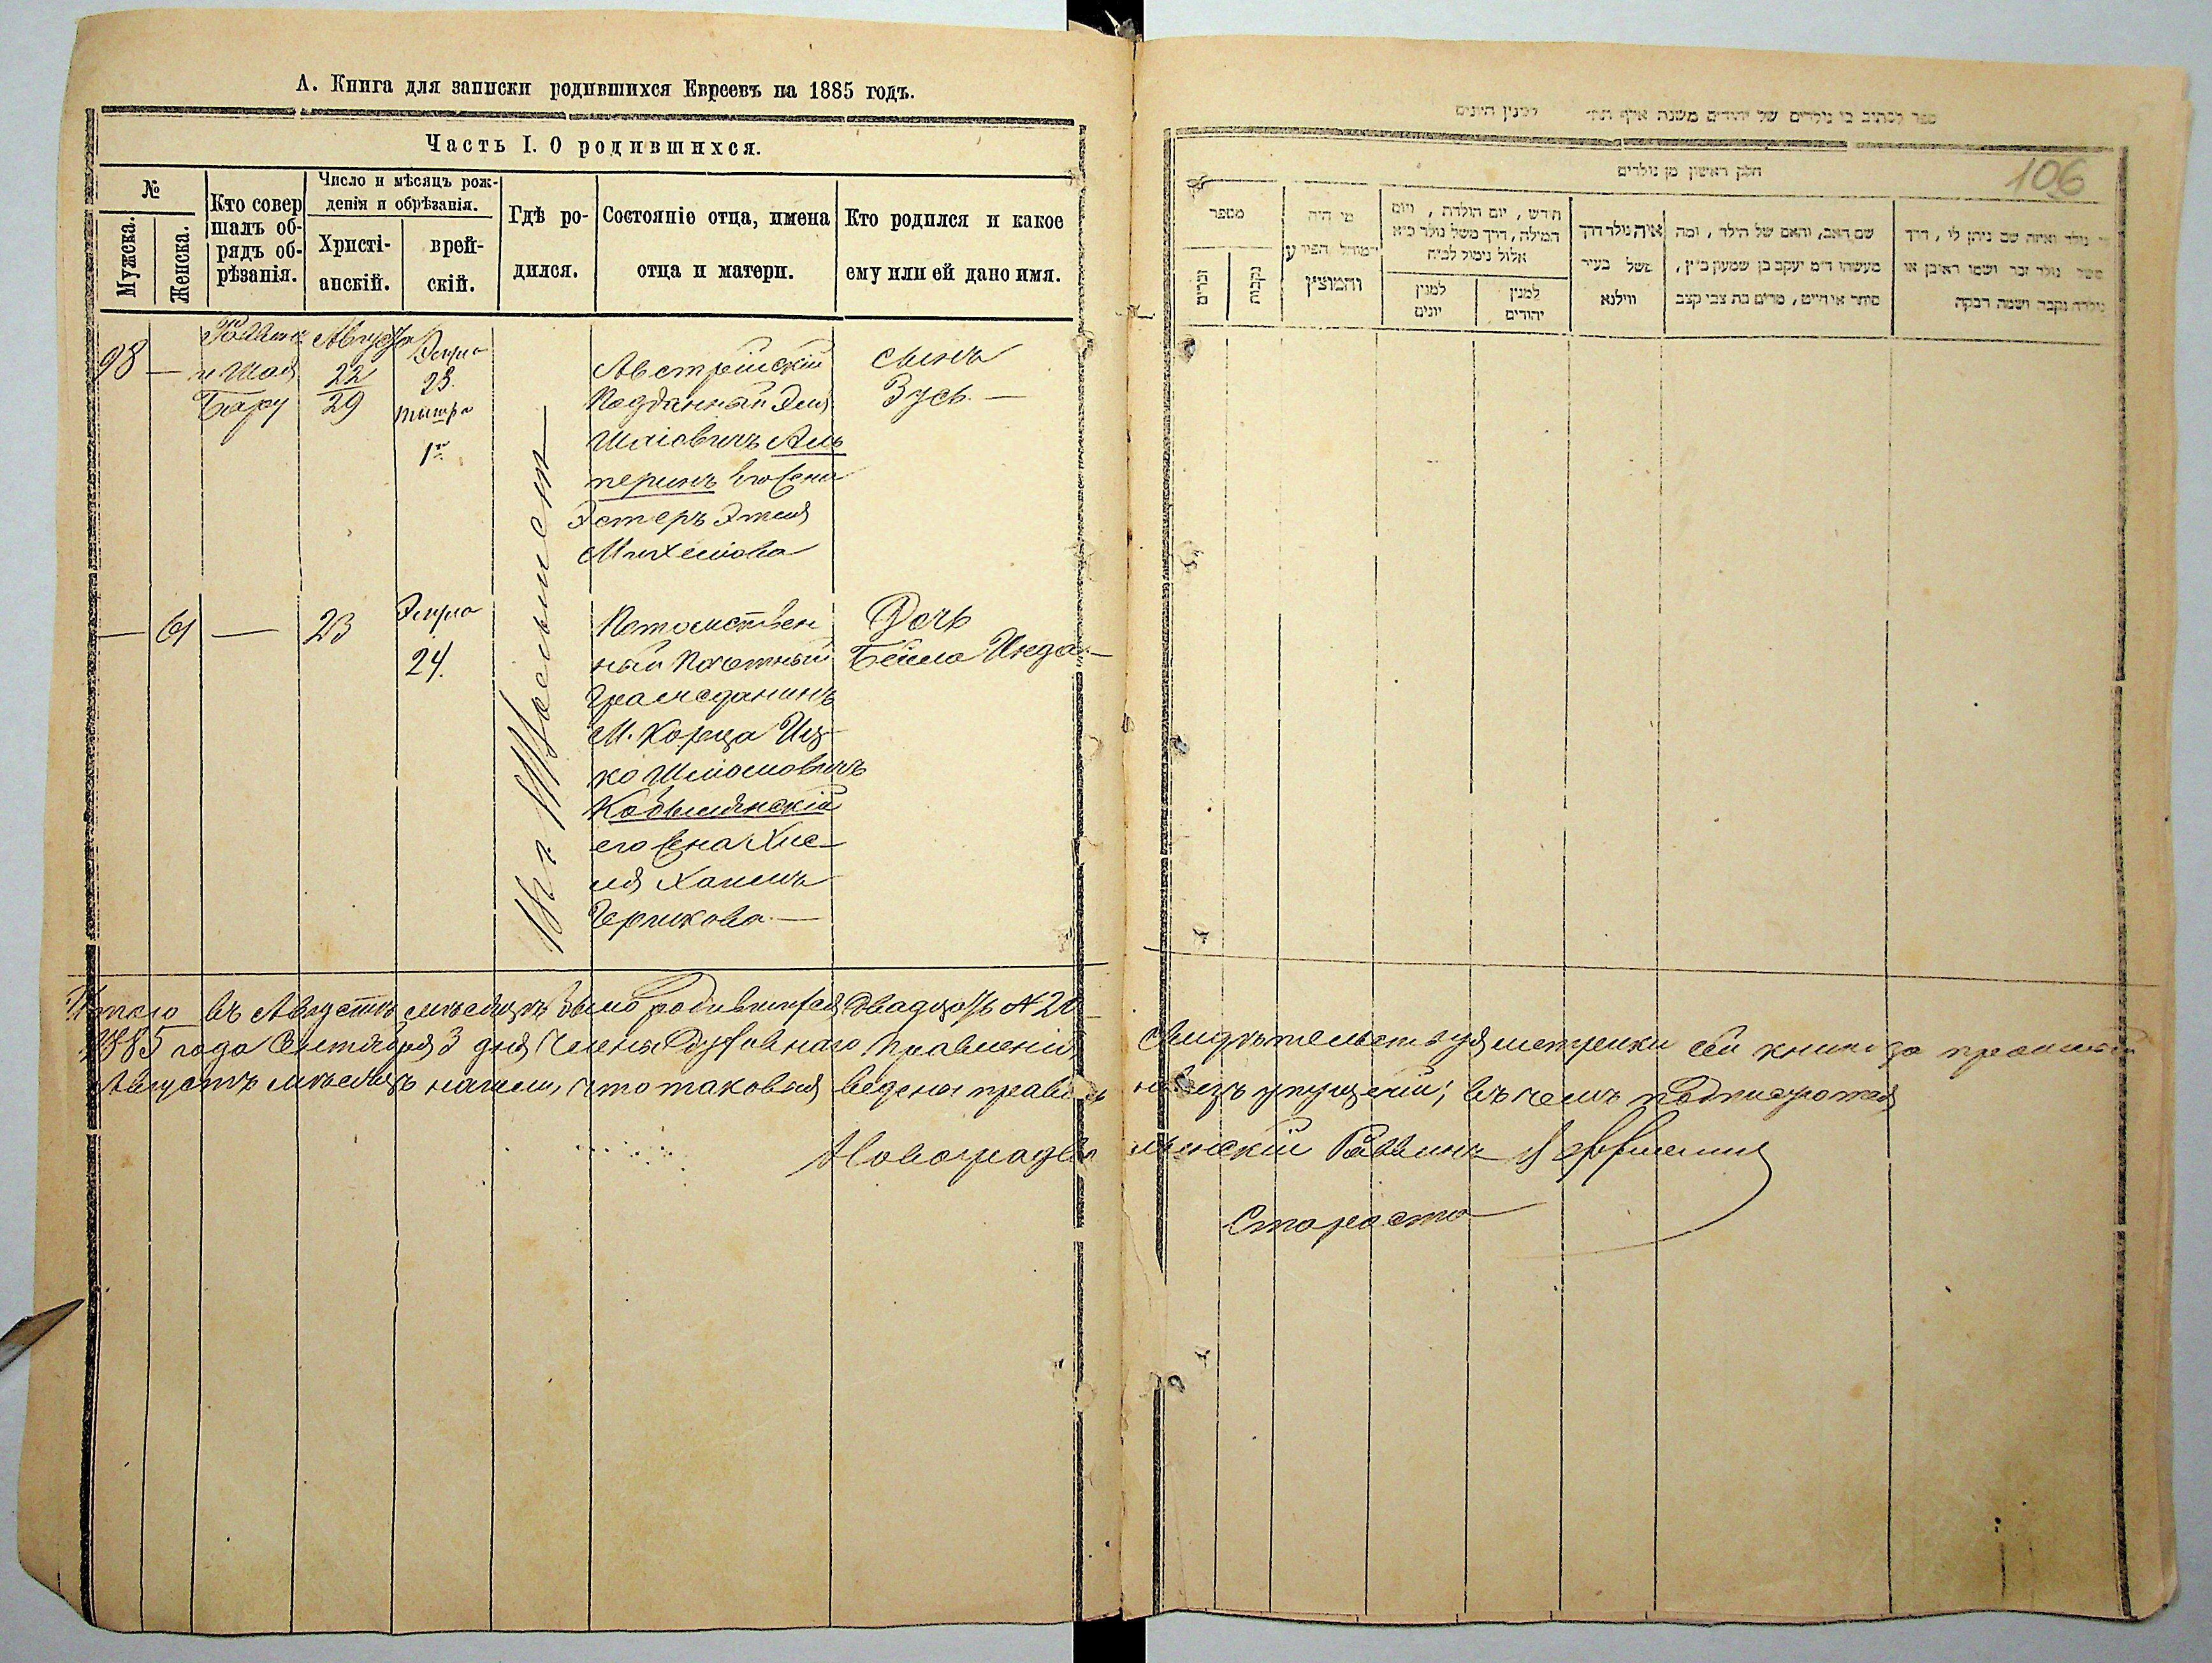 А. Книга для записки родившихся Евреевъ на 1885 годъ.
Часть I. О родившихся.
№
Мужска.
Женска.
Кто совер
шалъ об-
рядъ об-
рѣзанія.
Число и мѣсяцъ рож-
денія и обрѣзанія.
Христі-
анскій.
врей-
скій.
Гдѣ ро-
дился.
Состояніе отца, имена
отца и матери.
Кто родился и какое
ему или ей дано имя.
98
—
и Шая
Августа
22
29
23
1
Австрійскій
Подданный
Шліовичъ Аль
перинъ его жена
Эстеръ Этля
Михелова
сынъ
Зусь —
— 61 —
23
Элула
24.
Потомствен
ный Почетный
Гражданинъ
М. Корца Иц-
ко Шліомовичъ
Кобылянскій
его жена Хис-
ля
Герткова —
Дочь
Бейла Инда —
Итого въ Августѣ мѣсяцѣ было родившихся двадцать № 20
1885 года Сентября 3 дня Члены Духовнаго Правленія свидѣтельствуя метрики сей книги за прошлый
Августъ мѣсяцъ нашли, что таковыя ведены правильно безъ упущеній; въ чемъ подписуются
Новоградволынскій Раввинъ
Староста
106
חלק ראשון מן נולדים
מספר
זכרים
נקבות
מי היה
המוהל הפורע
והמוצץ
חדש, יום הולדת, ויום
המילה, דרך משל נולד כ״א
אלול נימול לכ״ח
למנין
יונים
למנין
יהודים
איה נולד דרך
משל בעיר
ווילנא
שם האב, והאם של הילד, ומה
מעשהו ד״מ יעקב בן שמעון כ״ץ,
מרים בת צבי קצב
מי נולד ואיזה שם ניתן לו, דרך
משל נולד זכר ושמו ראובן או
נולדה נקבה ושמה רבקה